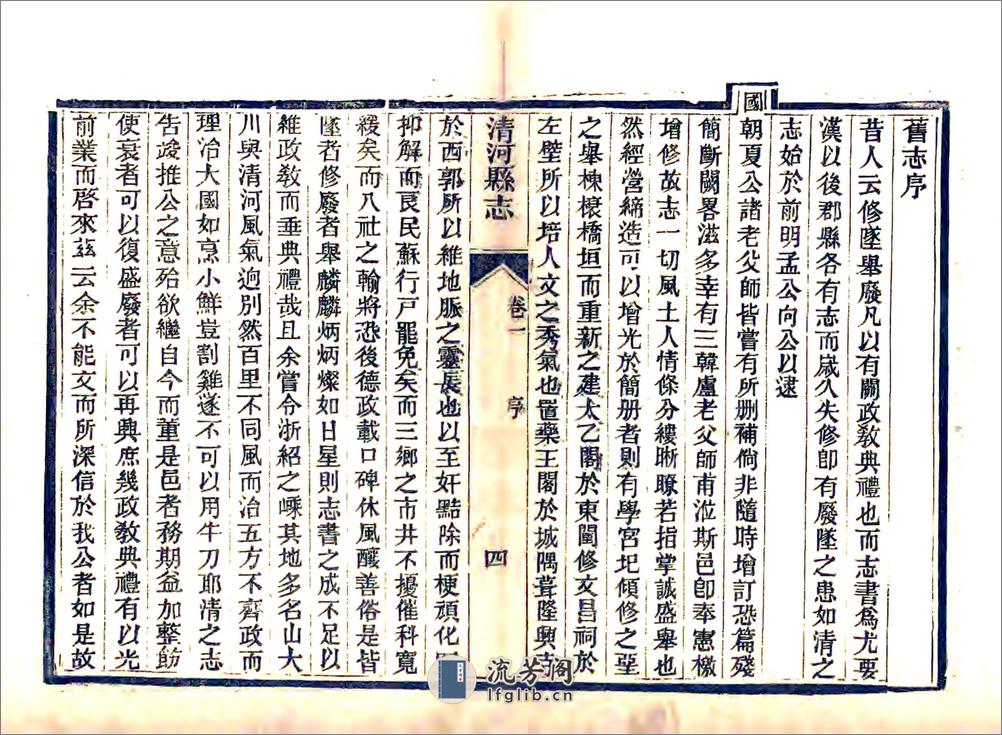 舊志序
昔人云修墜舉廢凡以有關政教典禮也而志書爲尤要
漢以後郡縣各有志而歲久失修卽有廢墜之患如清之
志始於前明孟公向公以逮
國
朝夏公諸老父師皆嘗有所删補倘非隨時增訂恐篇殘
簡斷闕畧滋多幸有三韓盧老父師甫涖斯邑卽奉憲檄
增修故志一切風土人情條分縷晰瞭若指掌誠盛舉也
然經營締造可以增光於簡册者則有學宮圮傾修之堊
之舉棟榱橋垣而重新之建太乙閣於東闉修文昌祠於
左壁所以培人文之秀氣也置藥王閣於城隅葺隆興寺
清河縣志
卷一
序
四
於西郭所以維地脈之靈辰也以至奸黠除而梗頑化
抑解而良民蘇行戸罷免矣而三鄉之市井不擾催科寬
緩矣而八社之輸將恐後德政載口碑休風釀善俗是皆
墜者修廢者舉麟麟炳炳燦如日星則志書之成不足以
維政教而垂典禮哉且余嘗令浙紹之嵊其地多名山大
川與清河風氣逈別然百里不同風而治五方不齊政而
理冶大國如烹小鮮豈割雞遂不可以用牛刀耶清之志
告竣推公之意殆欲繼自今而董是邑者務期益加整飭
使衰者可以復盛廢者可以再興庶幾政教典禮有以光
前業而啓來茲云余不能文而所深信於我公者如是故
流芳阁
lfglib.cn